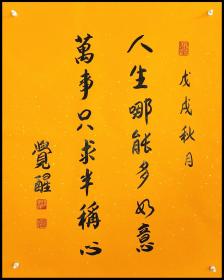 戊戌秋月
人生哪能多如意
萬事只求半稱心
覺醒